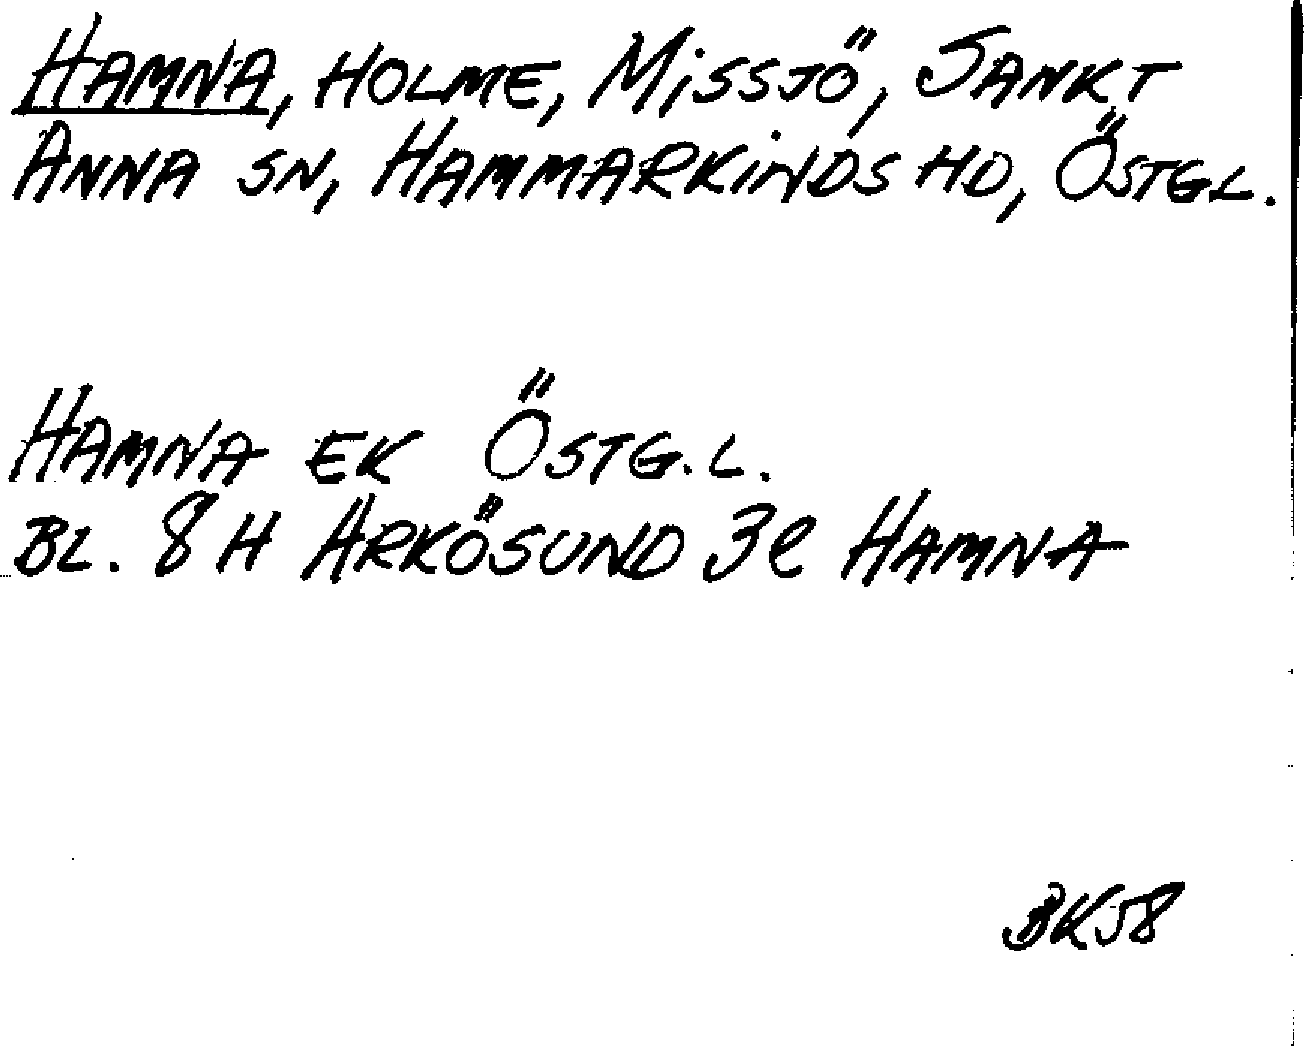 HAMNA, HOLME, MiSSJÖ, SANKT
ANNA SN, HAMMARKiNDS HD, ÖSTGL.
HAMNA EK ÖSTG.L.
BL. 8 H ARKÖSUND 3e HAMNA
BK58